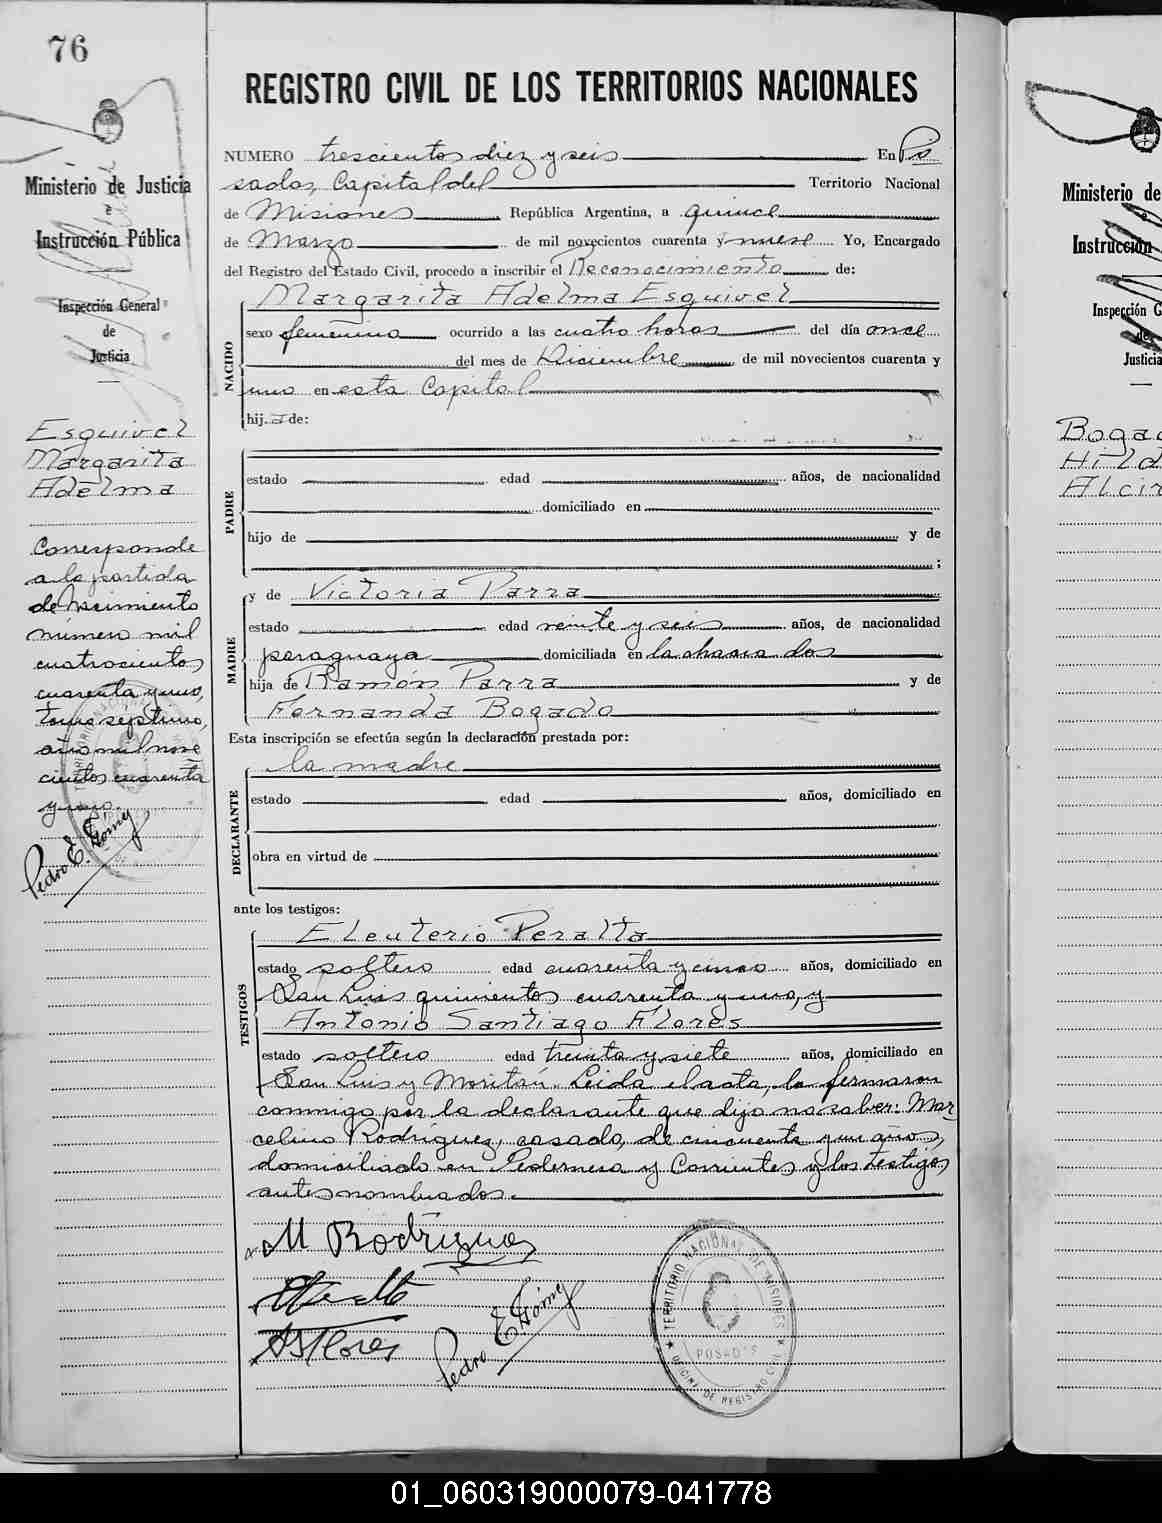 76
REGISTRO CIVIL DE LOS TERRITORIOS NACIONALES
Ministerio de Justicia
Instrucción Pública
Inspección General
de
Justicia
Esquivel
Margarita
Adelma
Corresponde
a la partida
de Nacimiento
número mil
cuatrocientos
cuarenta y uno,
tomo séptimo,
año mil nove
cientos cuarenta
y uno.
Pedro E. Gómez
NUMERO trescientos diez y seis En Po
sadas, Capital del Territorio Nacional
de Misiones República Argentina, a quince
de Marzo de mil novecientos cuarenta y nueve Yo, Encargado
del Registro del Estado Civil, procedo a inscribir el Reconocimiento de:
NACIDO
Margarita Adelma Esquivel
sexo femenino ocurrido a las cuatro horas del día once
del mes de Diciembre de mil novecientos cuarenta y
uno en esta Capital
hija de:
PADRE
estado edad años, de nacionalidad
domiciliado en
hijo de y de
;
MADRE
y de Victoria Parra
estado edad veinte y seis años, de nacionalidad
paraguaya domiciliada en la chacra dos
hija de Ramón Parra y de
Fernanda Bogado
Esta inscripción se efectúa según la declaración prestada por:
DECLARANTE
la madre
estado edad años, domiciliado en
obra en virtud de
ante los testigos:
TESTIGOS
Eleuterio Peralta
estado soltero edad cuarenta y cinco años, domiciliado en
San Luis quinientos cuarenta y uno, y
Antonio Santiago Flores
estado soltero edad treinta y siete años, domiciliado en
San Luis y Moritán. Leida el acta, la firmaron
conmigo por la declarante que dijo no saber: Mar
celino Rodríguez, casado, de cincuenta y un años,
domiciliado en Pedernera y Corrientes y los testigos
antes nombrados.
M Rodríguez
ASFlores
Pedro E. Gómez
TERRITORIO NACIONAL DE MISIONES
POSADAS
OFICINA DE REGISTRO CIVIL
Ministerio de
Instrucción
Inspección G
de
Justicia
Boga
Hild
Alcir
01_060319000079-041778